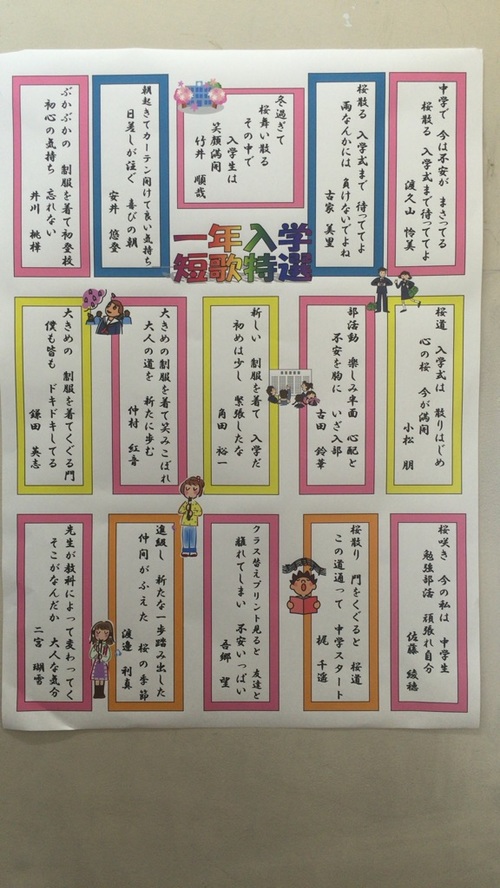 中学で 今は不安が まさってる
桜散る 入学式まで 待っててよ
渡久山 怜美
桜散る 入学式まで 待っててよ
雨なんかには 負けないでよね
古家 美里
冬過ぎて
桜舞い散る
その中で
入学生は
笑顔満開
竹井 順哉
朝起きてカーテン開けて良い気持ち
日差しが注ぐ 喜びの朝
安井 悠登
ぶかぶかの 制服を着て初登校
初心の気持ち 忘れない
井川 桃樺
一年入学
短歌特選
桜道 入学式は 散りはじめ
心の桜 今が満開
小松 朋
部活動 楽しみ半面 心配と
不安を胸に いざ入部
古田 鈴華
新しい 制服を着て 入学だ
初めは少し 緊張したな
角田 裕一
大きめの制服を着て笑みこぼれ
大人の道を 新たに歩む
仲村 紅音
大きめの 制服を着てくぐる門
僕も皆も ドキドキしてる
鎌田 英志
桜咲き 今の私は 中学生
勉強部活 頑張れ自分
佐藤 綾穂
桜散り 門をくぐると 桜道
この道通って 中学スタート
梶 千遥
クラス替えプリント見ると 友達と
離れてしまい 不安いっぱい
吾郷 望
進級し 新たな一歩踏み出した
仲間がふえた 桜の季節
渡邉 利真
先生が教科によって変わってく
そこがなんだか 大人な気分
二宮 瑚雪